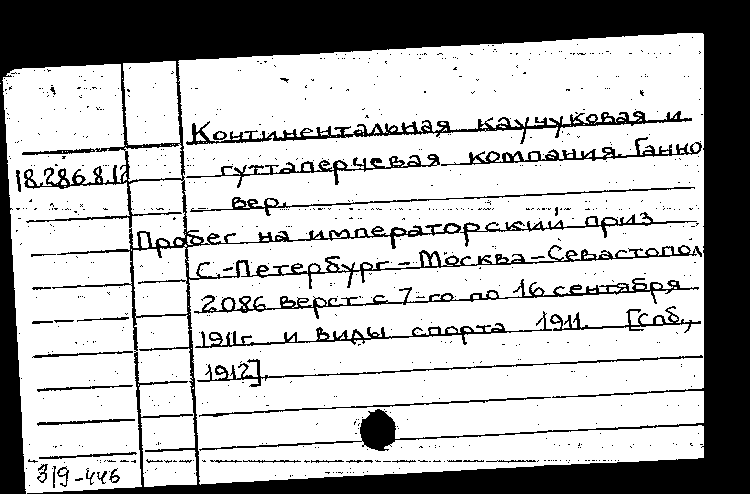 Континентальная каучуковая и
18.286.8.12 гуттаперчевая компания. Ганно
вер.
Пробег на императорский приз
С.-Петербург-Москва-Севастопол
2086 верст с 7-го по 16 сентября
1911г. и виды спорта 1911. [спб.,
1912].
319-446